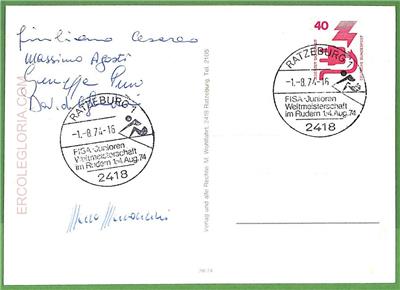 Giuliano Cesareo
Massimo Agosti
Giuseppe
ERCOLEGLORIA.COM
RATZEBURG
-1.-8.74-16
FISA-Junioren
Weltmeisterschaft
im Rudern 1-4.Aug.74
2418
Verlag und alle Rechte: M. Wohlfahrt, 2418 Ratzeburg, Tel. 2105
40
RATZEBURG
-1.-8.74-16
FISA-Junioren
Weltmeisterschaft
im Rudern 1-4.Aug.74
2418